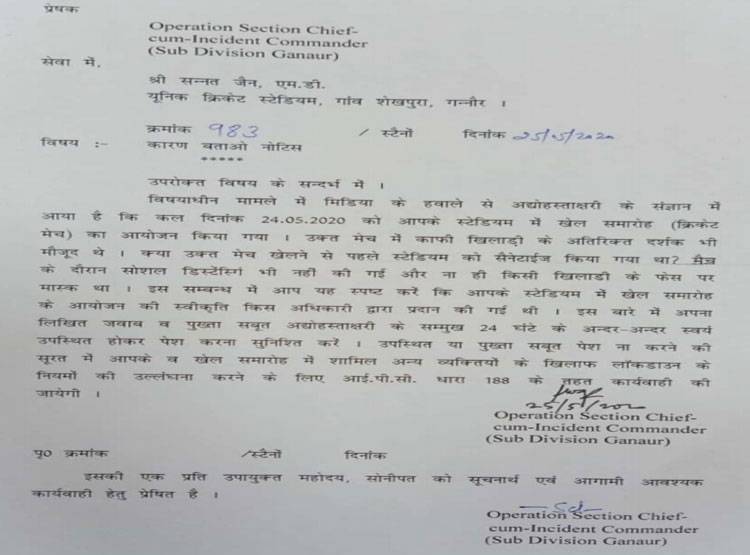 प्रेषक
Operation Section Chief-
cum-Incident Commander
(Sub Division Ganaur)
सेवा में,
श्री सन्नत जैन, एम.डी.
यूनिक क्रिकेट स्टेडियम, गांव शेखपुरा, गन्नौर ।
क्रमांक 983 / स्टैनों दिनांक 25/5/2020
विषय :- कारण बताओ नोटिस
*****
उपरोक्त विषय के सन्दर्भ में ।
विषयाधीन मामले में मिडिया के हवाले से अद्योहस्ताक्षरी के संज्ञान में
आया है कि कल दिनांक 24.05.2020 को आपके स्टेडियम में खेल समारोह (क्रिकेट
मेच) का आयोजन किया गया । उक्त मेच में काफी खिलाड़ी के अतिरिक्त दर्शक भी
मौजूद थे । क्या उक्त मेच खेलने से पहले स्टेडियम को सैनेटाईज किया गया था? मैच
के दौरान सोशल डिस्टेंसिंग भी नहीं की गई और ना ही किसी खिलाडी के फेस पर
मास्क था । इस सम्बन्ध में आप यह स्पष्ट करें कि आपके स्टेडियम में खेल समारोह
के आयोजन की स्वीकृति किस अधिकारी द्वारा प्रदान की गई थी । इस बारे में अपना
लिखित जवाब व पुख्ता सबूत अद्योहस्ताक्षरी के सम्मुख 24 घंटे के अन्दर-अन्दर स्वयं
उपस्थित होकर पेश करना सुनिश्ति करें । उपस्थित या पुख्ता सबूत पेश ना करने की
सूरत में आपके व खेल समारोह में शामिल अन्य व्यक्तियों के खिलाफ लॉकडाउन के
नियमों की उल्लंघना करने के लिए आई.पी.सी. धारा 188 के तहत कार्यवाही की
जायेगी ।
25/5/2020
Operation Section Chief-
cum-Incident Commander
(Sub Division Ganaur)
पृ0 क्रमांक /स्टैनों दिनांक
इसकी एक प्रति उपायुक्त महोदय, सोनीपत को सूचनार्थ एवं आगामी आवश्यक
कार्यवाही हेतु प्रेषित है ।
-Sd-
Operation Section Chief-
cum-Incident Commander
(Sub Division Ganaur)